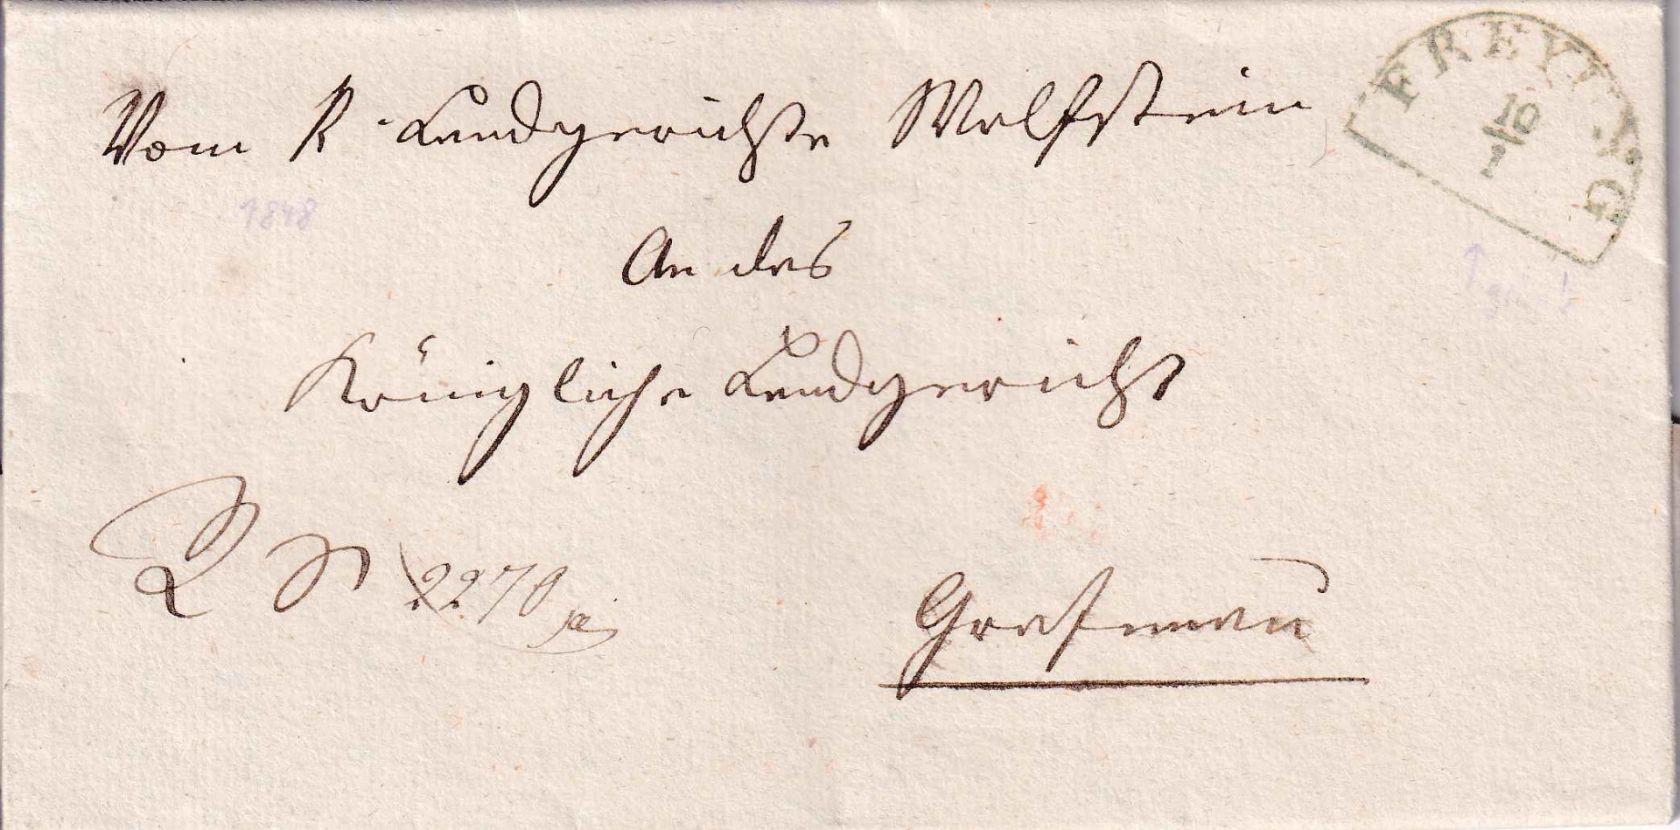 FREYUNG
10
Vom K. Landgerichte Wolfstein
1848
An das
Königliche Landgericht
2270
Grafenau